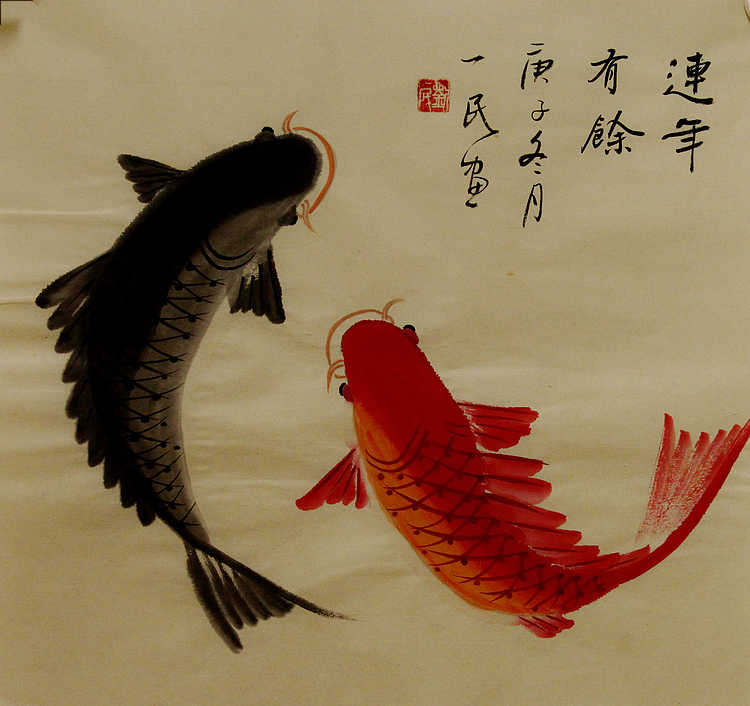 連年
有餘
庚子冬月
一民画